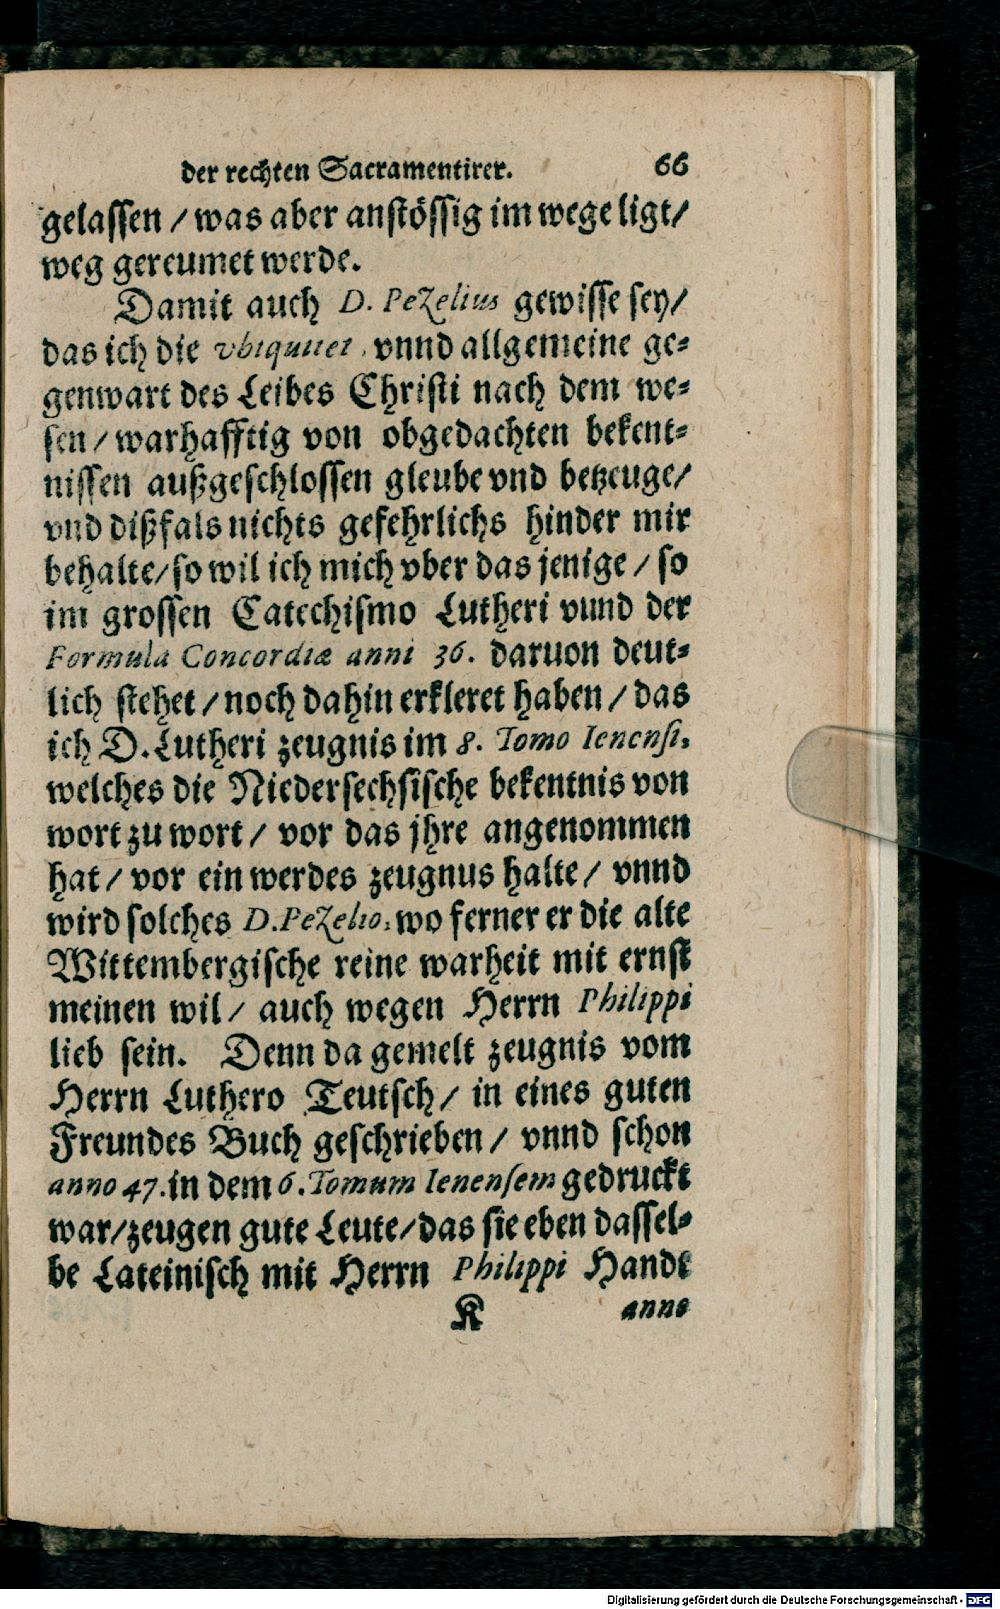 der rechten Sacramentirer. 66
gelassen / was aber anstössig im wege ligt/
weg gereumet werde.
Damit auch D. Pezelius gewisse sey/
das ich die vbiquitet, vnnd allgemeine ge-
genwart des Leibes Christi nach dem we-
sen / warhafftig von obgedachten bekent-
nissen außgeschlossen gleube vnd betzeuge/
vnd dißfals nichts gefehrlichs hinder mir
behalte/ so wil ich mich vber das jenige / so
im grossen Catechismo Lutheri vnnd der
Formula Concordiæ anni 36. daruon deut-
lich stehet / noch dahin erkleret haben / das
ich D. Lutheri zeugnis im 8. Tomo Ienensi,
welches die Niedersechsische bekentnis von
wort zu wort / vor das jhre angenommen
hat / vor ein werdes zeugnus halte / vnnd
wird solches D. Pezelio, wo ferner er die alte
Wittembergische reine warheit mit ernst
meinen wil / auch wegen Herrn Philippi
lieb sein. Denn da gemelt zeugnis vom
Herrn Luthero Teutsch / in eines guten
Freundes Buch geschrieben / vnnd schon
anno 47. in dem 6. Tomum Ienensem gedruckt
war/ zeugen gute Leute/ das sie eben dassel-
be Lateinisch mit Herrn Philippi Hande
K anno
Digitalisierung gefördert durch die Deutsche Forschungsgemeinschaft - DFG